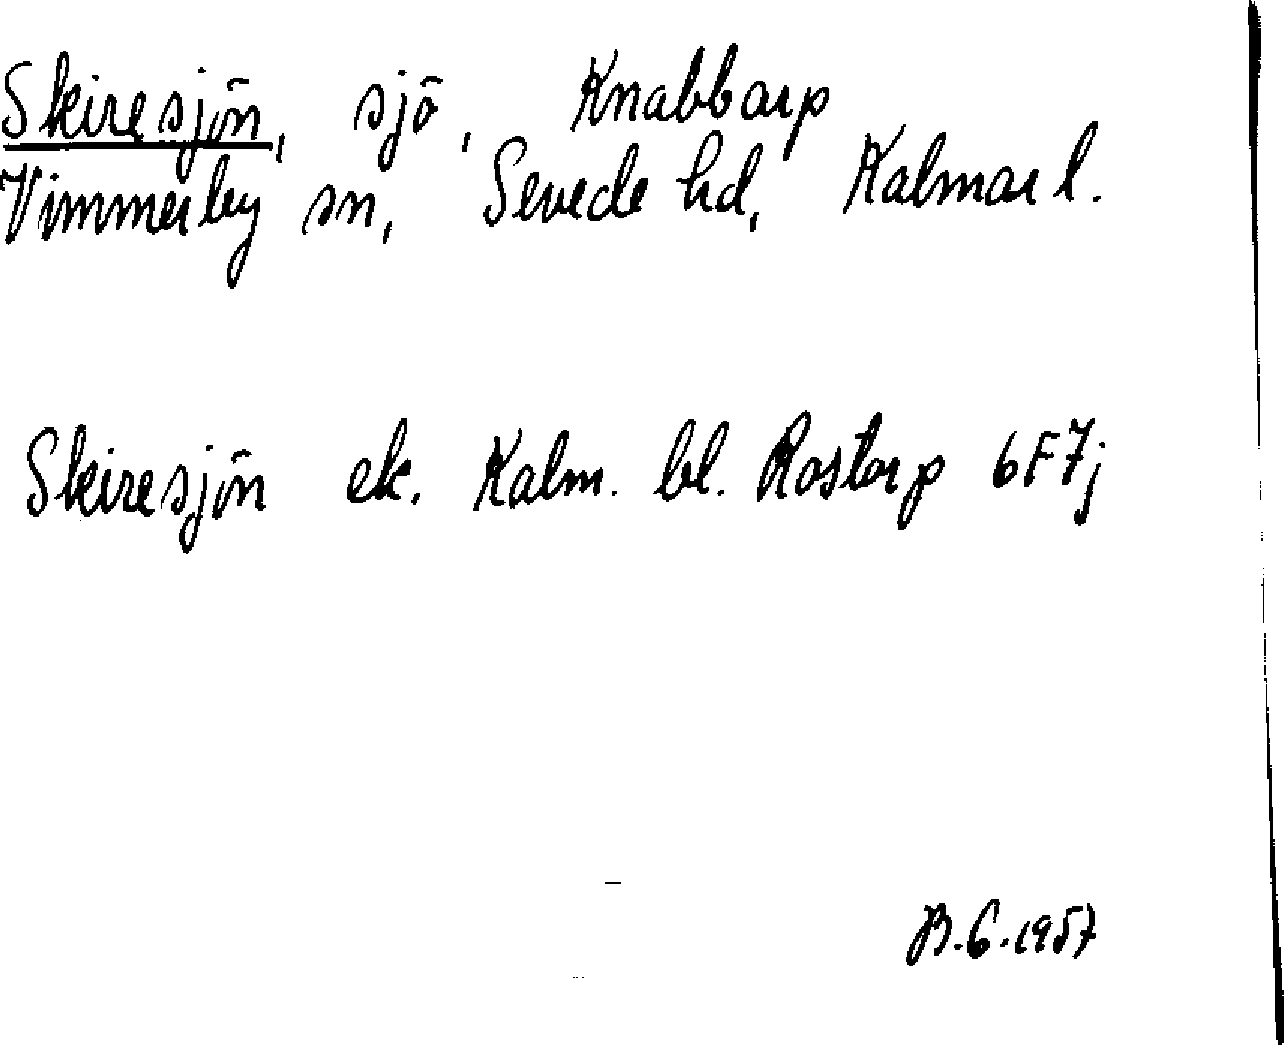 Skiresjön, sjö, Knabbarp
Vimmerby sn, Sevede hd, Kalmar l.
Skiresjön ek. Kalm. bl. Rostorp 6F7j
B.G. 1957